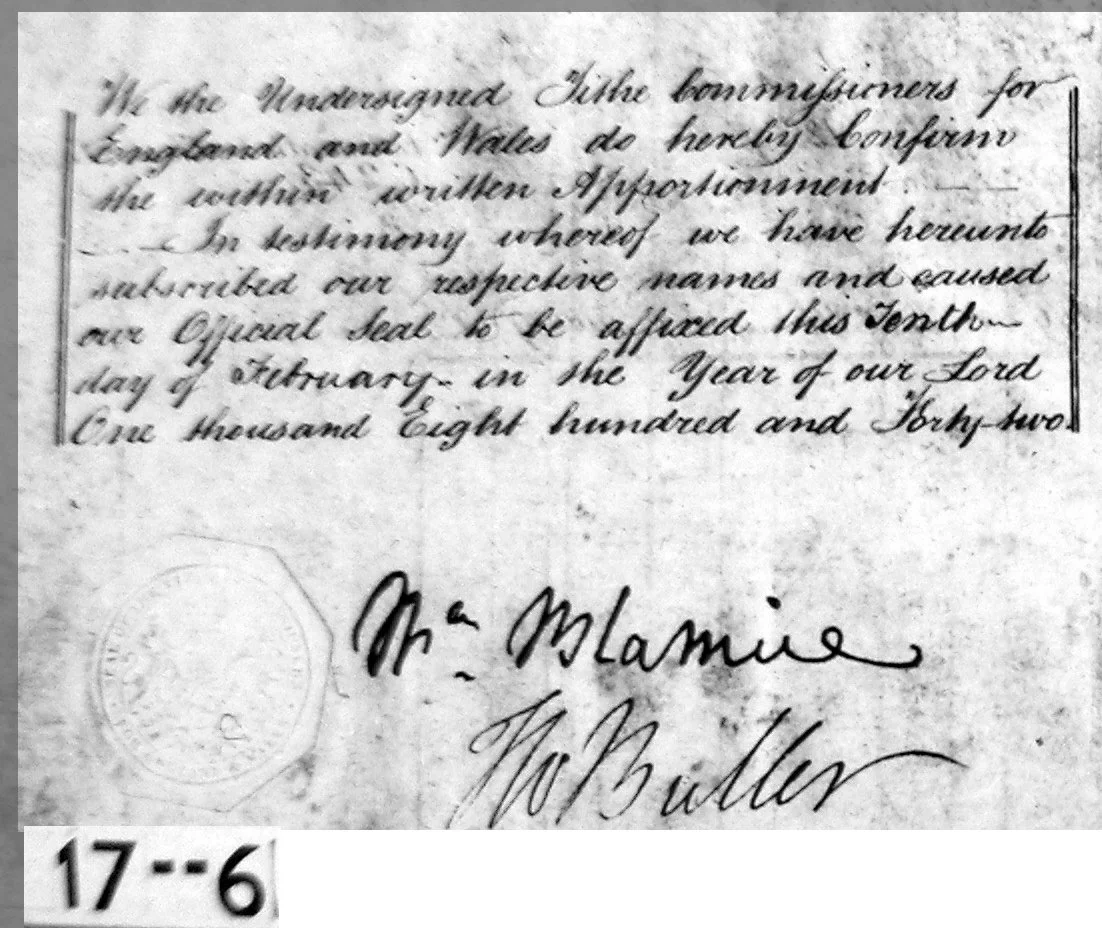 We the Undersigned Tithe Commissioners for
England and Wales do hereby Confirm
the within written Apportionment.
In testimony whereof we have hereunto
subscribed our respective names and caused
our Official Seal to be affixed this Tenth
day of February in the Year of our Lord
One thousand Eight hundred and Forty-two.
Wm Blamire
Tho Buller
17--6